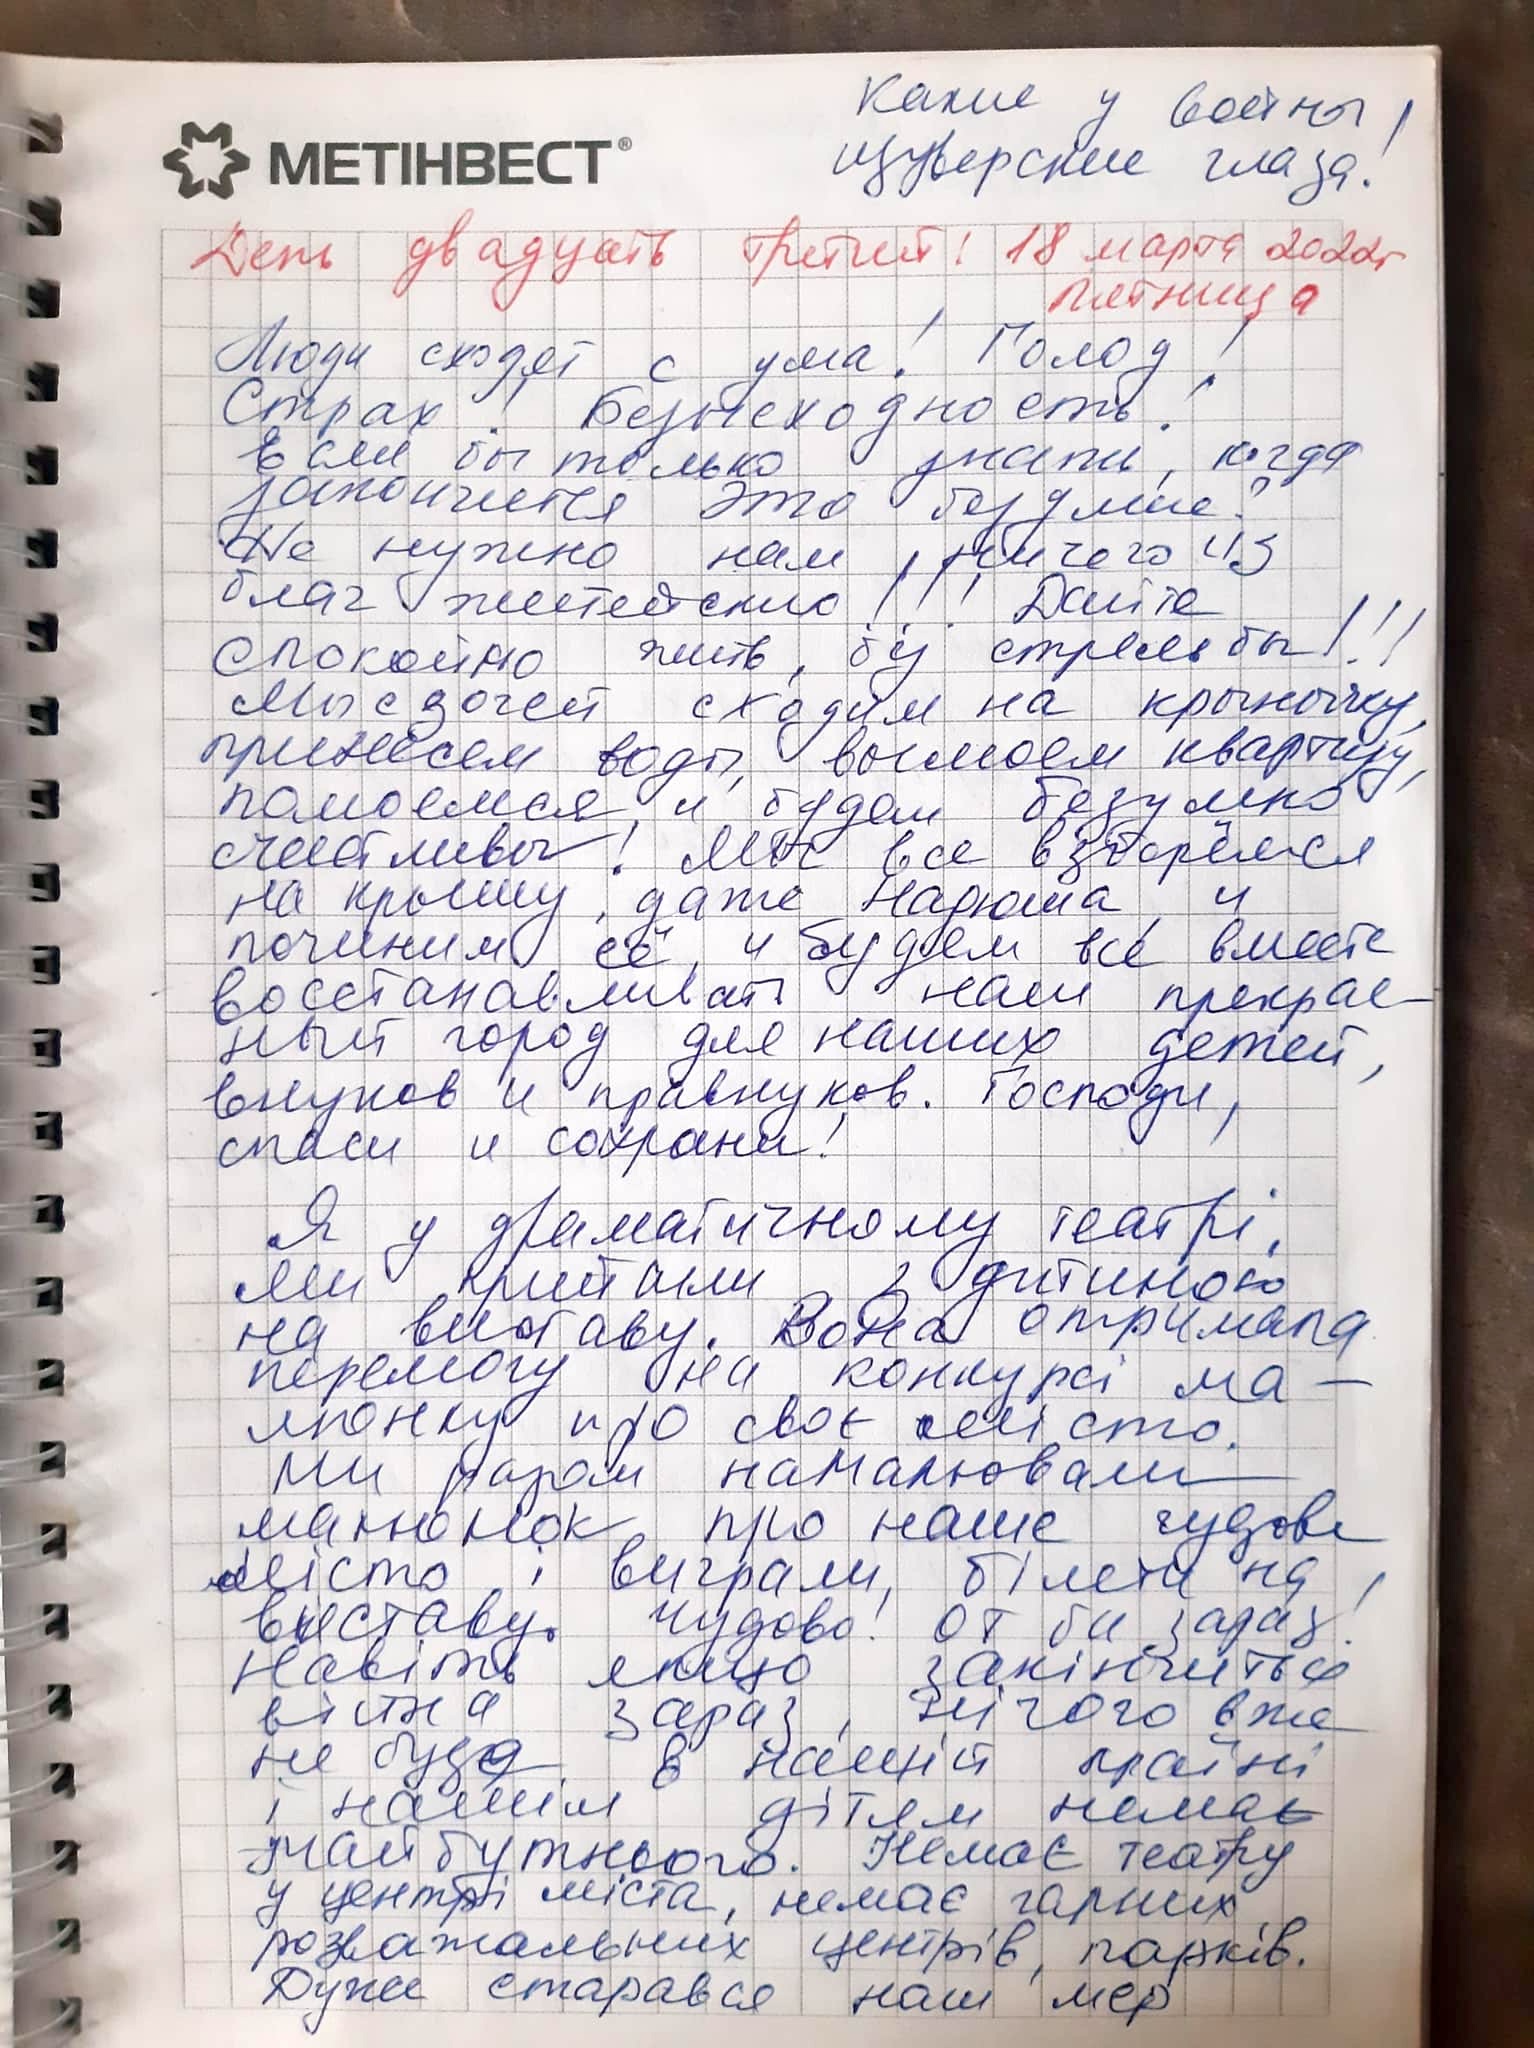 Какие у войны
изуверские глаза!
МЕТІНВЕСТ®
День двадцать третий! 18 марта 2022г
пятница
Люди сходят с ума! Голод!
Страх! Безысходность!
Если бы только знать, когда
закончится это безумие?
Не нужно нам ничего из
благ житейских!!! Дайте
спокойно жить, без стрельбы!!!
Мы с дочей сходим на крыничку,
принесем воды, вымоем квартиру,
помоемся и будем безумно
счастливы! Мы все взберёмся
на крышу, даже Надюша, и
починим её, и будем все вместе
восстанавливать наш прекрас-
ный город для наших детей,
внуков и правнуков. Господи,
спаси и сохрани!
Я у драматичному театрі,
ми прийшли з дитиною
на виставу. Вона отримала
перемогу на конкурсі ма-
люнку про своє місто.
Ми разом намалювали
малюнок про наше чудове
місто і виграли білети на
виставу. Чудово! От би зараз!
Навіть якщо закінчиться
війна зараз, нічого вже
не буде в нашій країні
і нашим дітям немає
майбутнього. Немає театру
у центрі міста, немає гарних
розважальних центрів, парків.
Дуже старався наш мер